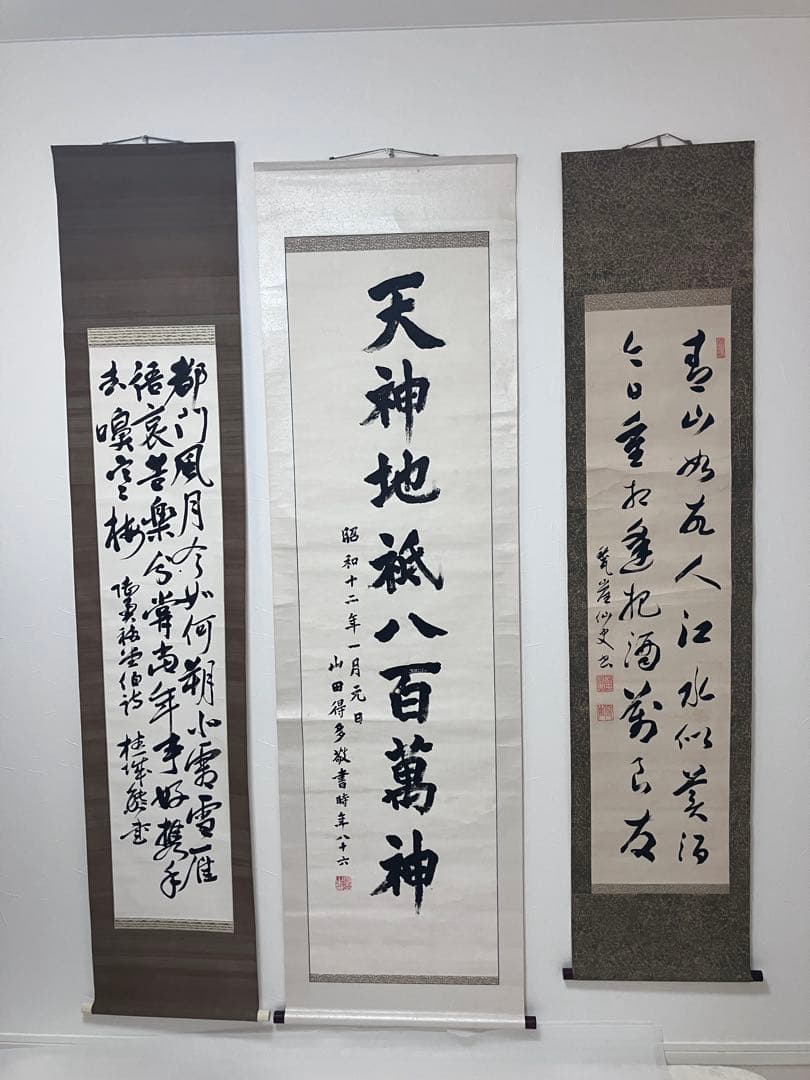 青山如故人江水似美酒
今日重相逢把酒對良友
崖仙史書
天神地祇八百萬神
昭和十二年一月元日
山田得多敬書時年八十六
都門風月今如何朔北霜雪雁
語哀苦樂分嘗當年事好携手
去嗅寒梅
陸奥福堂伯詩